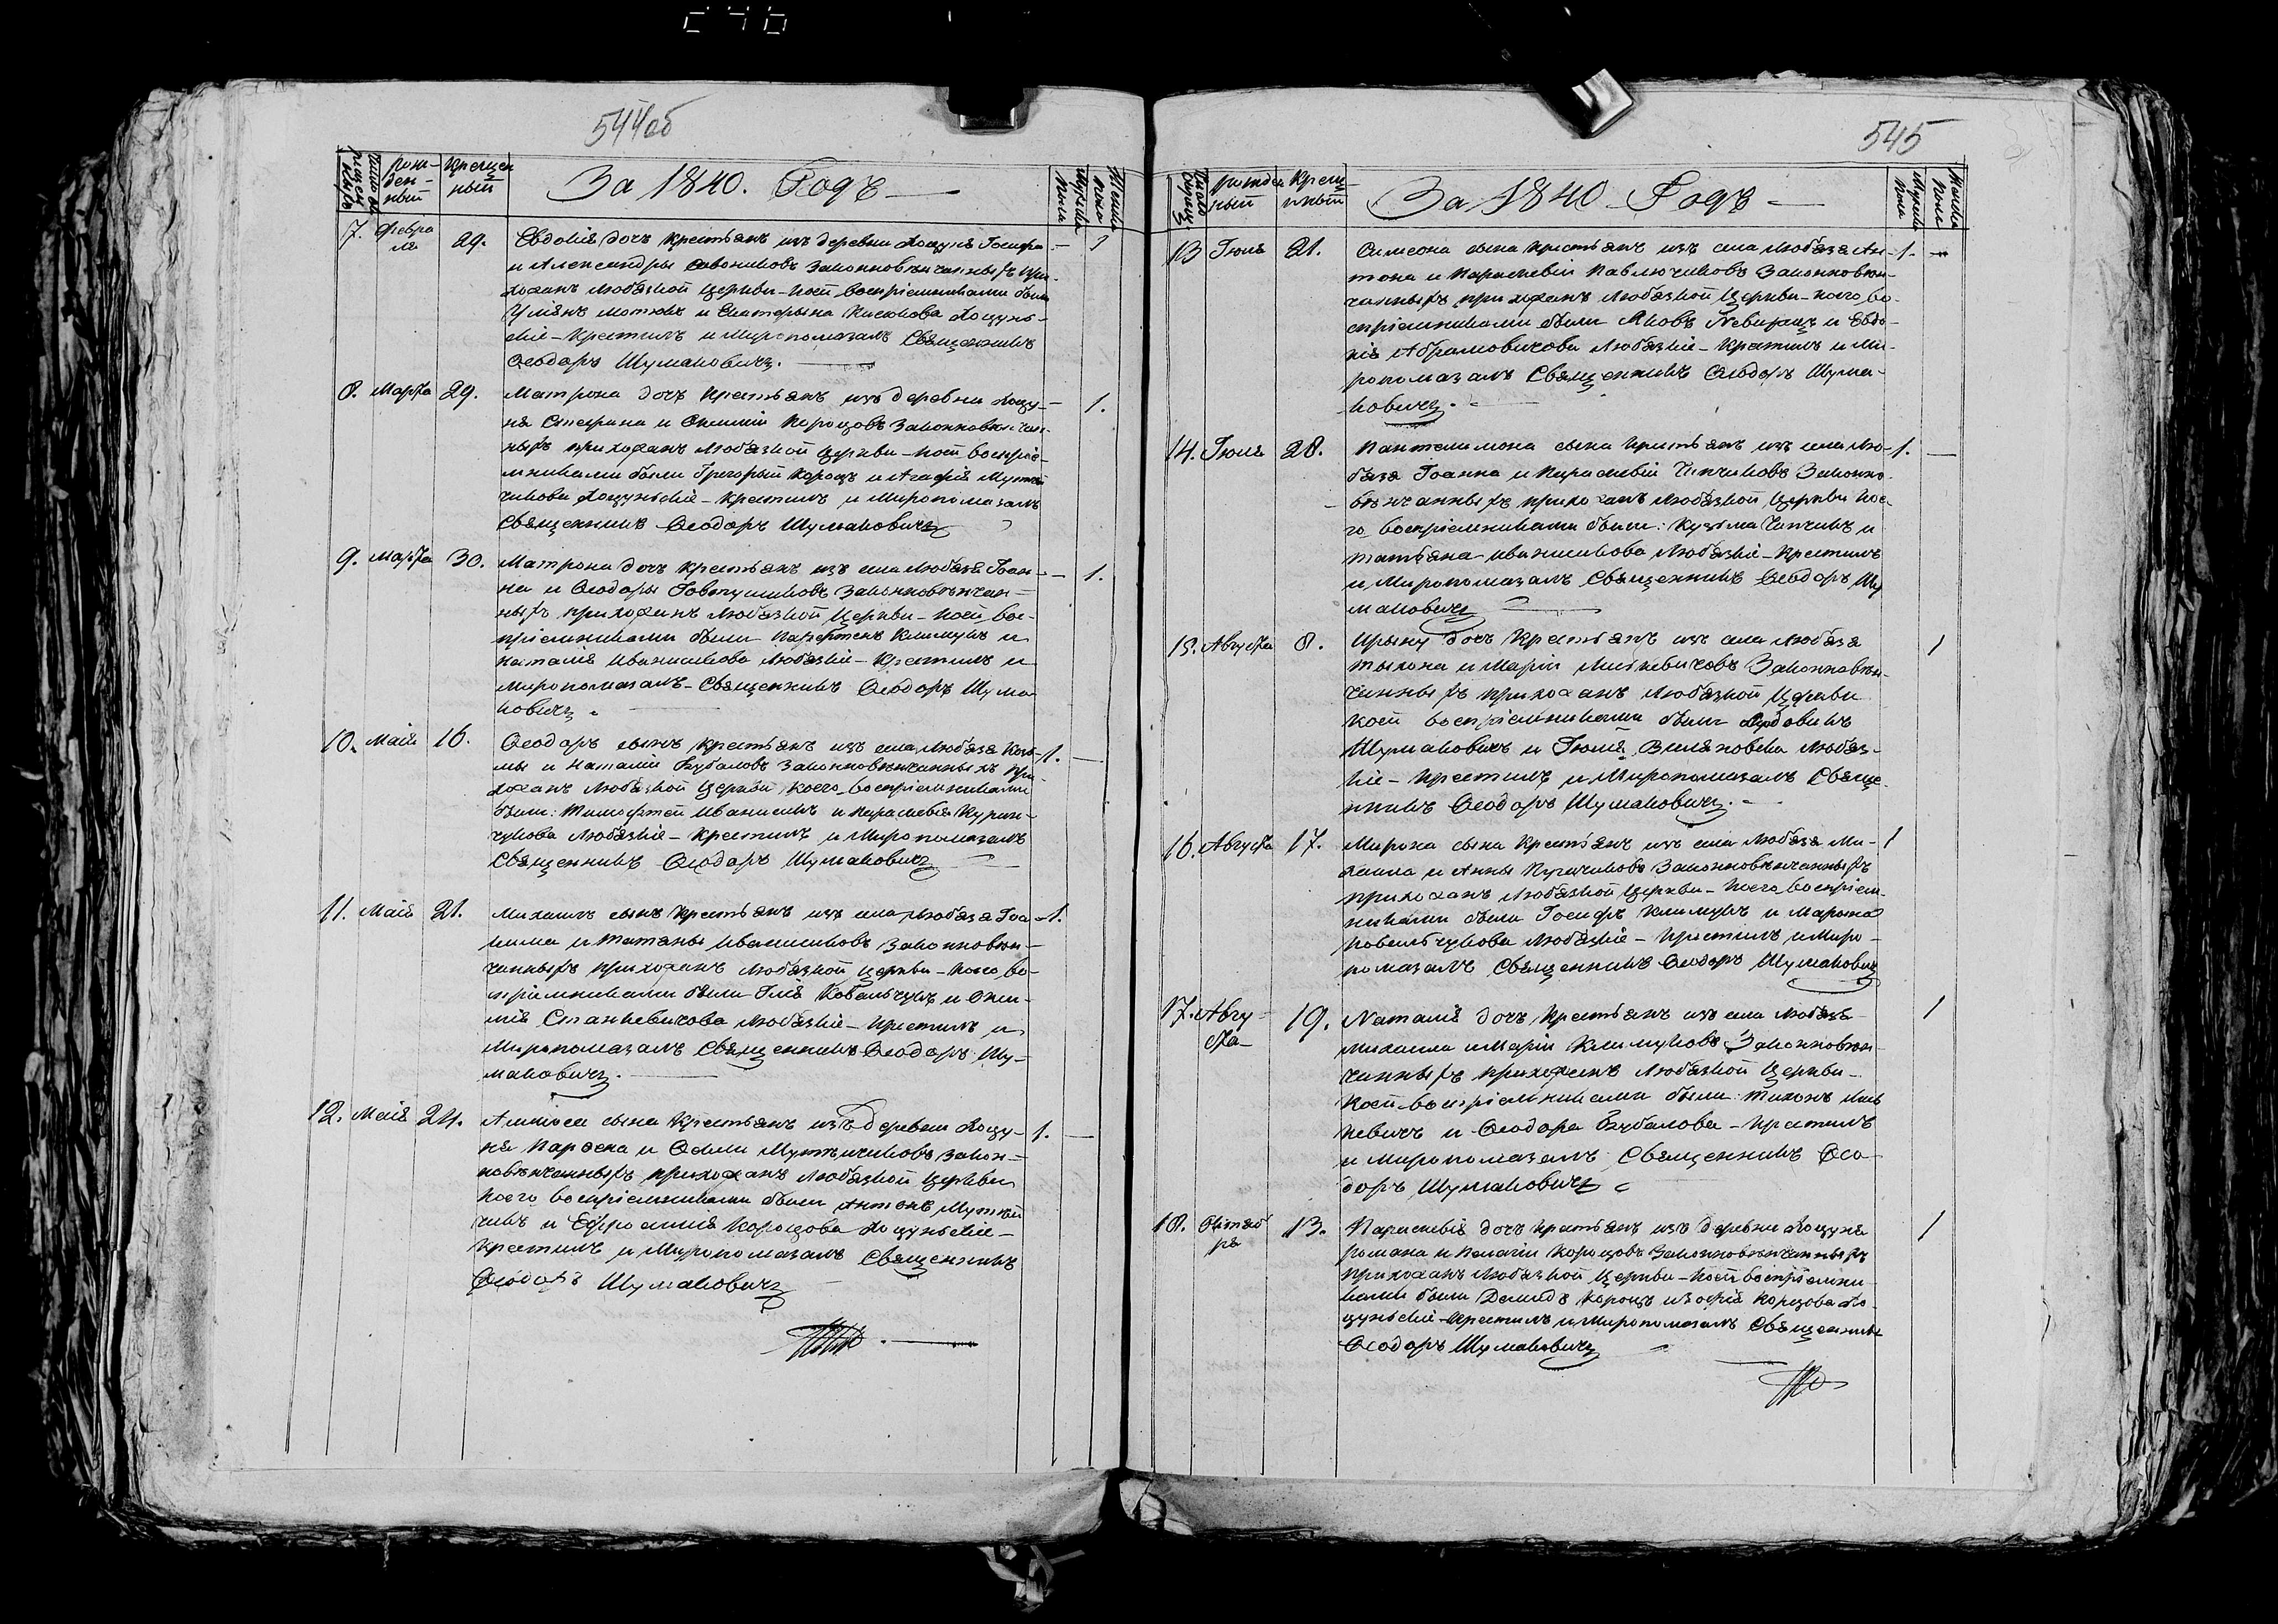 544об
За 1840. Годъ
7. Февра
ля 29. Евдокія дочь крестьянъ изъ деревни Лоцуня Іосифа — 1
и Александры Савониковъ законновѣнчанныхъ при-
хожанъ Любязкой Церкви – коей воспріемниками были
и Екатерына Лоцунь-
скіе – крестилъ и Миропомазалъ Священникъ
Ѳеодоръ Шумановичъ.
8. Марта 29. Матрона дочь крестьянъ изъ деревни Лоцу- — 1.
ня Стефана и Корощовъ законновѣнчан-
ныхъ прихожанъ Любязкой Церкви – коей воспріе-
мниками были Григорый Корощъ и Агафія
Лоцуньскіе – крестилъ и Миропомазалъ
Священникъ Ѳеодоръ Шумановичъ
9. Марта 30. Матрона дочь крестьянъ изъ села Любязя Іоан- — 1.
на и Ѳеодоры законновѣнчан-
ныхъ прихожанъ Любязкой Церкви – коей вос-
пріемниками были Парфенъ Климукъ и
Наталія Иванисикова Любязкіе – Крестилъ и
Миропомазалъ – Священникъ Ѳеодоръ Шума-
новичъ.
10. Маія 16. Ѳеодоръ сынъ крестьянъ изъ села Любязя Козь- 1. —
мы и Наталіи Кубаловъ законновѣнчанныхъ при-
хожанъ Любязкой Церкви, коего воспріемниками
были: Тимофтей Иванисикъ и Параскевія Курин-
чукова Любязкіе – Крестилъ и Миропомазалъ
Священникъ Ѳеодоръ Шумановичъ
11. Маія 21. Михаилъ сынъ крестьянъ изъ села Любязя Іоа- 1.
кима и Татяны Иванисиковъ законновѣн-
чанныхъ прихожанъ Любязкой Церкви – коего во-
спріемниками были Илія Ковальчукъ и
Станкевичова Любязкіе – крестилъ и
Миропомазалъ Священникъ Ѳеодоръ Шу-
мановичъ.
12. Маія 24. сына крестьянъ изъ деревни Лоцу- 1. —
ня Парфена и закон-
новѣнчанныхъ прихожанъ Любязкой Церкви
коего воспріемниками были Антонъ
и Ефросинія Корощова Лоцуньскіе –
крестилъ и Миропомазалъ Священникъ
Ѳеодоръ Шумановичъ
545
За 1840 Годъ
13 Іюля 21. Симеона сына крестьянъ изъ села Любязя Ан- 1. —
тона и Параскевіи Павлючиковъ законновѣн-
чанныхъ прихожанъ Любязкой Церкви – коего во-
спріемниками были Яковъ и Евдо-
кія Абрамовичова Любязкіе – Крестилъ и Ми-
ропомазалъ Священникъ Ѳеодоръ Шума-
новичъ.
14. Іюля 28. Пантелимона сына крестьянъ изъ села Лю- 1. —
бязя Іоанна и Параскевіи Чипчиковъ законно-
вѣнчанныхъ прихожанъ Любязкой Церкви кое-
го воспріемниками были: Кузьма Чипчикъ и
Татьяна Иванисикова Любязкіе – Крестилъ
и Миропомазалъ Священникъ Ѳеодоръ Шу
мановичъ
15. Августа 8. Ирыну дочь крестьянъ изъ села Любязя 1
Тыхона и Маріи Линкевичовъ законновѣн-
чанныхъ прихожанъ Любязкой Церкви
коей воспріемниками были Людовикъ
Шумановичъ и Іюлія Любяз-
кіе – крестилъ и Миропомазалъ Свяще-
нникъ Ѳеодоръ Шумановичъ.
16. Августа 17. Мирона сына крестьянъ изъ села Любязя Ми- 1
хаила и Анны законновѣнчанныхъ
прихожанъ Любязкой Церкви – коего воспріем-
никами были Іосифъ Климукъ и Марына
Ковальчукова Любязкіе – крестилъ и Миро-
помазалъ Священникъ Ѳеодоръ Шумановичъ
17. Авгу-
ста 19. Наталія дочь крестьянъ изъ села Любязя 1
Михаила и Маріи Климуковъ законновѣн-
чанныхъ прихожанъ Любязкой Церкви –
коей воспріемниками были: Тихонъ Лин
кевичъ и Ѳеодора Кубалова – крестилъ
и Миропомазалъ Священникъ Ѳео-
доръ Шумановичъ
18. Октяб
ря 13. Параскевія дочь крестьянъ изъ деревни Лоцуня 1
Романа и Пелагіи Корощовъ законновѣнчанныхъ
прихожанъ Любязкой Церкви – коей воспріемни-
ками были Демидъ Корощъ и Зофія Корощова Ло-
цуньскіе – крестилъ и Миропомазалъ Священникъ
Ѳеодоръ Шумановичъ